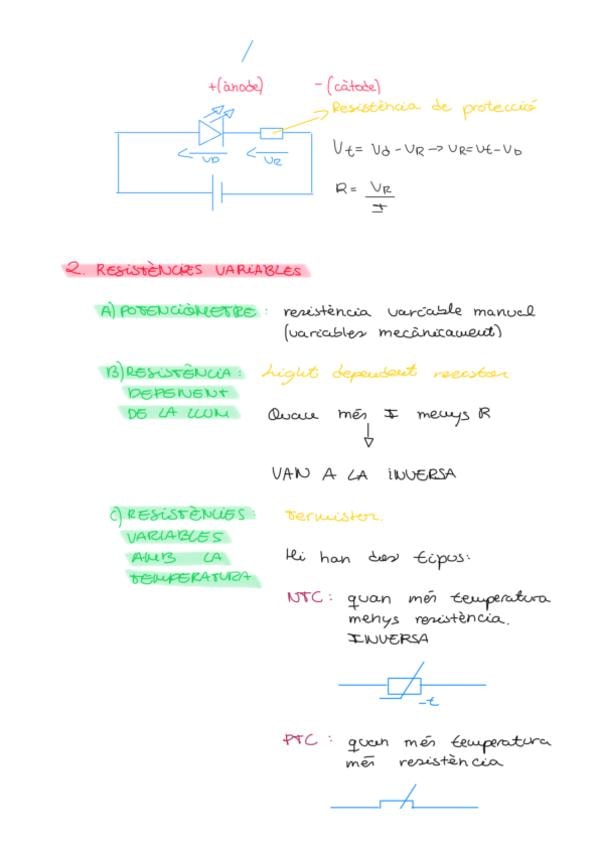 +(ànode) -(càtode)
Resistència de protecció
Vt= Vd-VR→VR=Vt-VD
VD VR
R= VR
I
2. RESISTÈNCIES VARIABLES
A) POTENCIÒMETRE: resistència variable manual
(variables mecànicament)
B) RESISTÈNCIA: Light dependent resistor
DEPENENT
DE LA LLUM
Quan més I menys R
VAN A LA INVERSA
C) RESISTÈNCIES: termistor
VARIABLES
AMB LA
TEMPERATURA
Hi han dos tipus:
NTC: quan més temperatura
menys resistència.
INVERSA
-t
PTC: quan més temperatura
més resistència